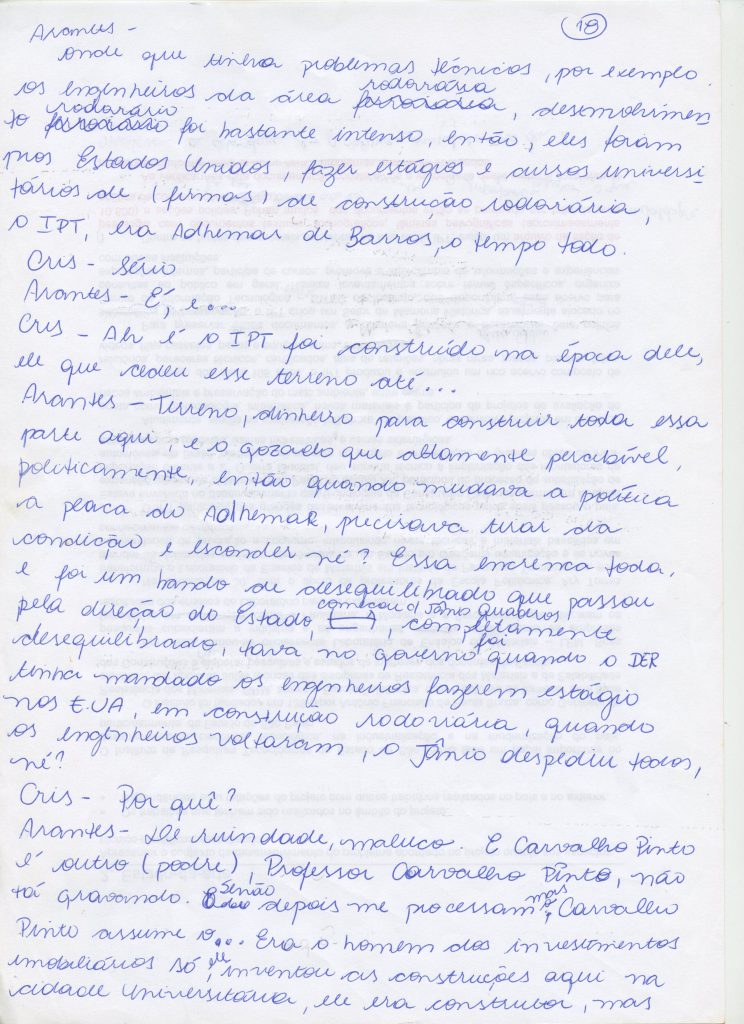 18
Arantes -
onde que tivera problemas técnicos, por exemplo
rodoviária
os engenheiros da área ferroviária, desenvolvimen
rodoviário
to ferroviário foi bastante intenso, então, eles foram
pros Estados Unidos, fazer estágios e cursos universi
tários de (firmas) de construção rodoviária,
o IPT, era Adhemar de Barros, o tempo todo.
Cris - Sério
Arantes - É, e....
Cris - Ah é o IPT foi construído na época dele,
ele que cedeu esse terreno até...
Arantes - Terreno, dinheiro para construir toda essa
parte aqui, e o gozado que altamente percebível,
politicamente, então quando mudava a política
a placa do Adhemar, precisava tirar da
condição e esconder né? Essa encrenca toda,
e foi um bando de desequilibrado que passou
começou c/ Jânio Quadros
pela direção do Estado, , completamente
foi
desequilibrado, tava no governo quando o DER
tinha mandado os engenheiros fazerem estágio
nos E.UA, em construção rodoviária, quando
os engenheiros voltaram, o Jânio despediu todos,
né?
Cris - Por quê?
Arantes - De ruindade, maluco. E Carvalho Pinto
é outro (podre), Professor Carvalho Pinto, não
Senão mas
tá gravando. depois me processam, o Carvalho
Pinto assume o... Era o homem dos investimentos
ele
imobiliários só, inventou as construções aqui na
cidade Universitária, ele era construtor, mas